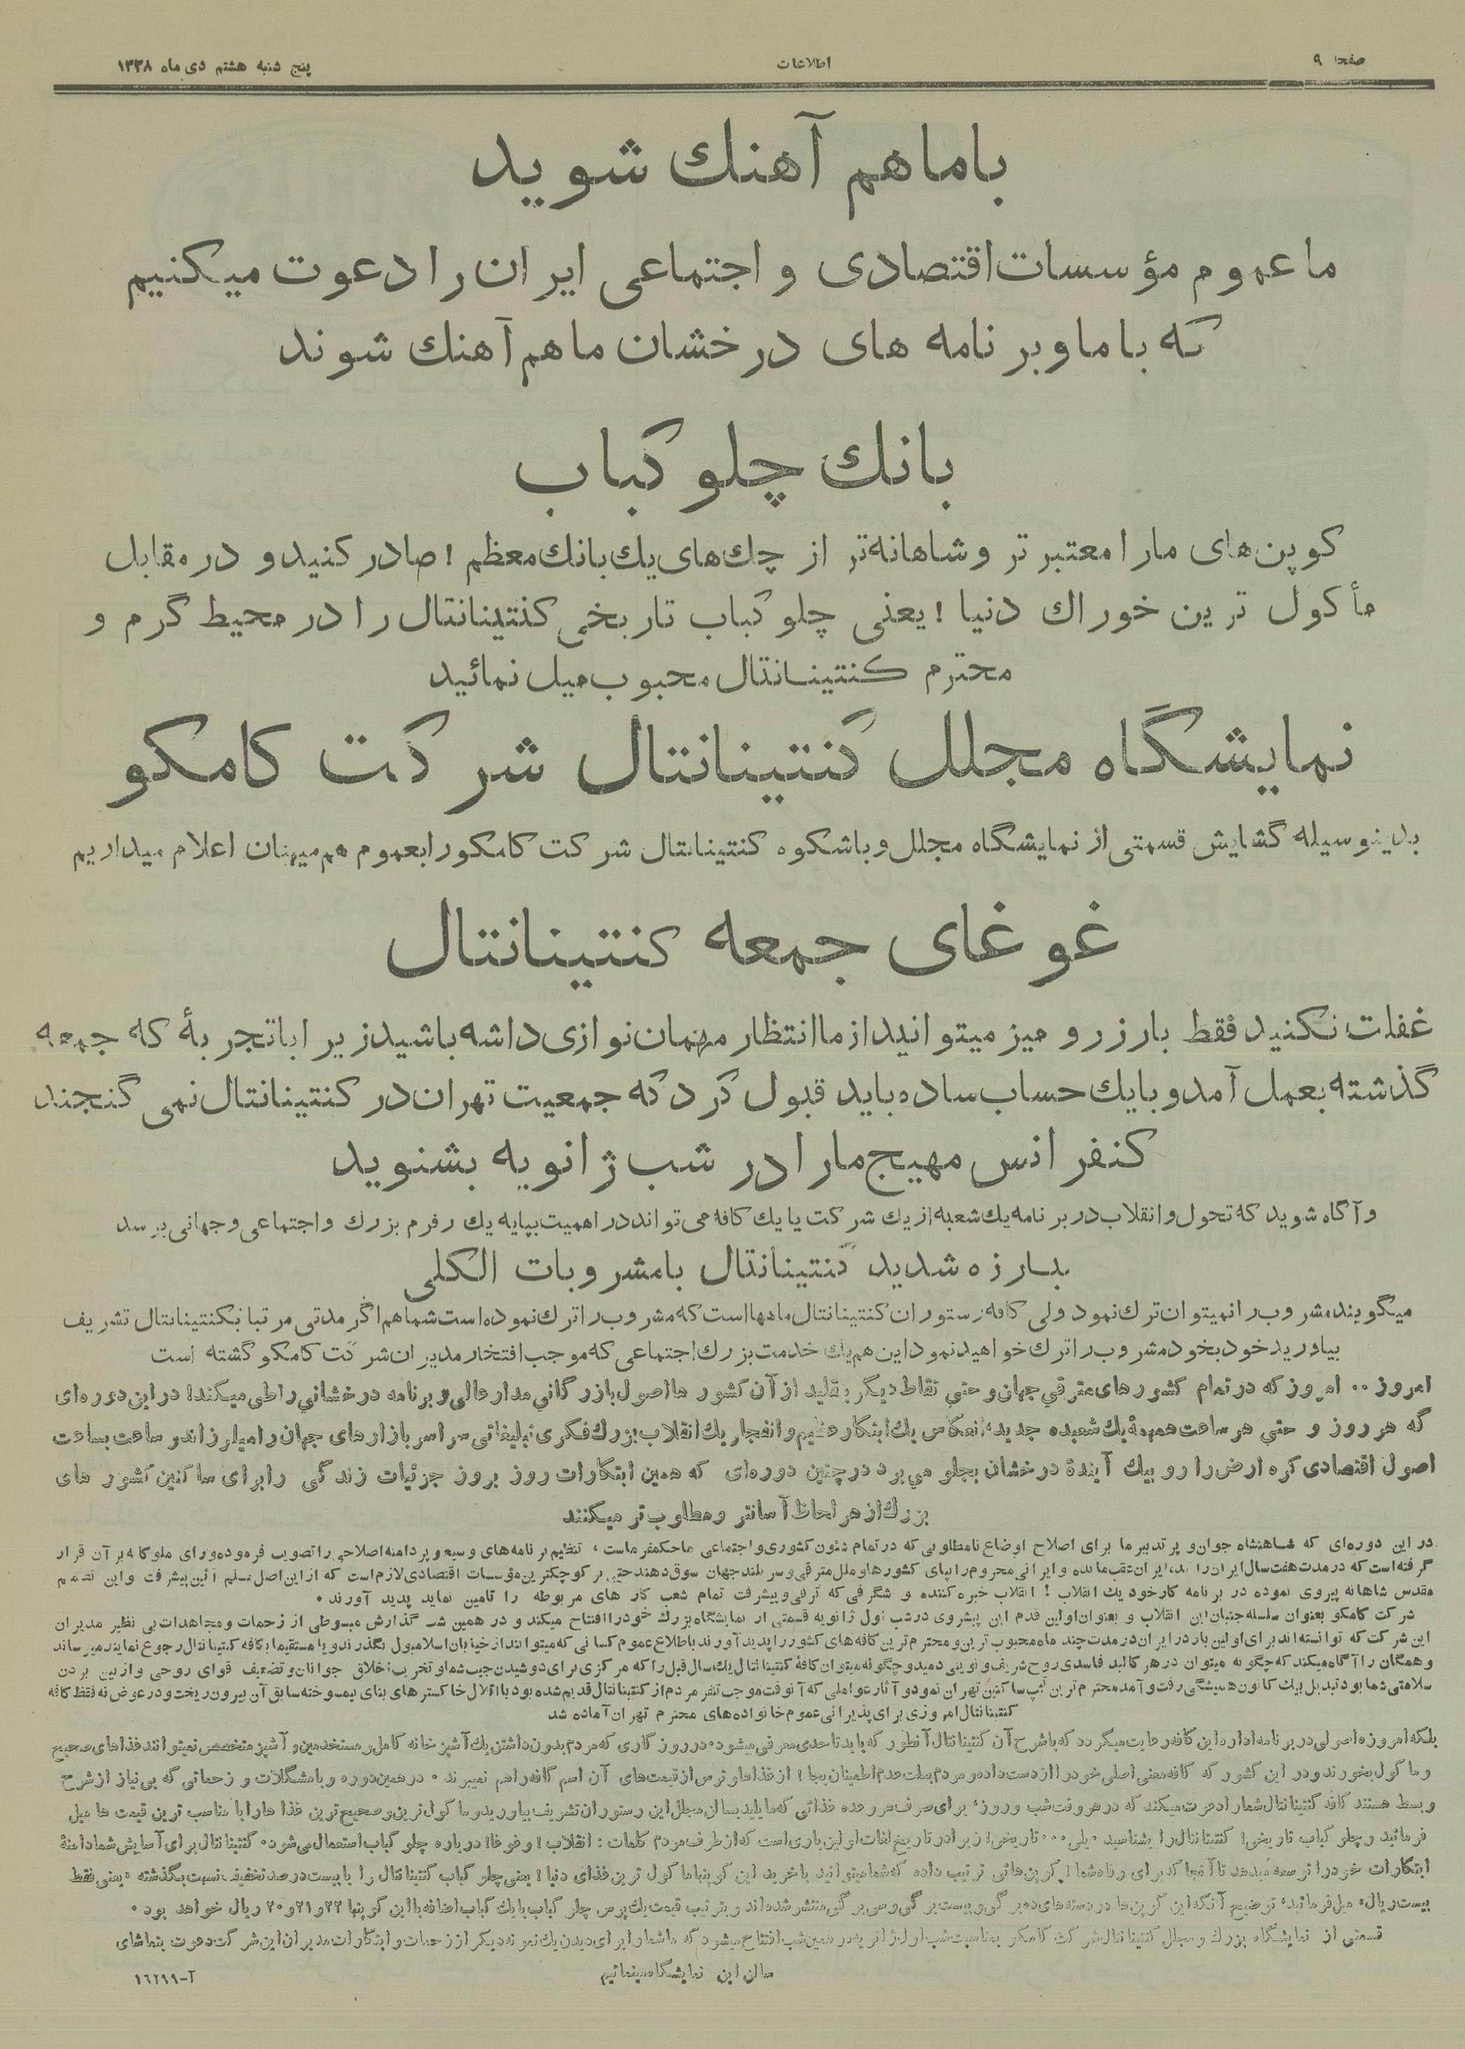 صفحه ۹
اطلاعات
پنج شنبه هشتم دی ماه ۱۳۳۸
باما هم آهنك شوید
ما عموم مؤسسات اقتصادی و اجتماعی ایران را دعوت میکنیم
که با ما و برنامه های درخشان ما هم آهنك شوند
بانك چلو کباب
کوپن‌های ما را معتبر تر و شاهانه‌تر از چك‌های یك بانك معظم ! صادر کنید و در مقابل
مأکول ترین خوراك دنیا ! یعنی چلو کباب تاریخی کنتینانتال را در محیط گرم و
محترم کنتینانتال محبوب میل نمائید
نمایشگاه مجلل کنتینانتال شرکت کامکو
بدینوسیله گشایش قسمتی از نمایشگاه مجلل و باشکوه کنتینانتال شرکت کامکو را بعموم هم‌میهنان اعلام میداریم
غوغای جمعه کنتینانتال
غفلت نکنید فقط بارزرو میز میتوانید از ما انتظار مهمان نوازی داشه باشید زیرا با تجربهٔ که جمعه
گذشته بعمل آمد و با یك حساب ساده باید قبول کرد که جمعیت تهران در کنتینانتال نمی گنجند
کنفرانس مهیج ما را در شب ژانویه بشنوید
و آگاه شوید که تحول و انقلاب در برنامه یك شعبه از یك شرکت یا یك کافه می تواند در اهمیت بپایه یك رفرم بزرك و اجتماعی و جهانی برسد
مبارزه شدید کنتینانتال با مشروبات الکلی
میگویند مشروب را نمیتوان ترك نمود ولی کافه رستوران کنتینانتال ماهها است که مشروب را ترك نموده است شما هم اگر مدتی مرتبا بکنتینانتال تشریف
بیاورید خود بخود مشروب را ترك خواهید نمود این هم یك خدمت بزرك اجتماعی که موجب افتخار مدیران شرکت کامکو گشته است
امروز .. امروز که در تمام کشورهای مترقی جهان و حتی نقاط دیگر بتقلید از آن کشورها اصول بازرگانی مدارعالی و برنامه درخشانی را طی میکند! در این دوره‌ای
که هر روز و حتی هر ساعت همهمهٔ یك شعبده جدید، انعکاس یك ابتکار عظیم و انفجار یك انقلاب بزرك فکری تبلیغاتی سراسر بازارهای جهان را میلرزاند و ساعت بساعت
اصول اقتصادی کره ارض را رو بیك آیندهٔ درخشان بجلو می برد در چنین دوره‌ای که همین ابتکارات روز بروز جزئیات زندگی را برای ساکنین کشور های
بزرك از هر لحاظ آسانتر و مطلوب تر میکنند
در این دوره‌ای که شاهنشاه جوان و پر تدبیر ما برای اصلاح اوضاع نامطلوبی که در تمام شئون کشوری و اجتماعی ما حکمفرماست ، تنظیم برنامه های وسیع و پر دامنه اصلاحی را تصویب فرموده و رای ملوکانه بر آن قرار
گرفته است که در مدت هفت سال ایران را
مقدس شاهانه پیروی نموده در برنامه کار خود یك انقلاب ! انقلاب خیره کننده و شگرفی که ترقی و پیشرفت تمام شعب کار های مربوطه را تامین نماید پدید آورند .
شرکت کامکو بعنوان سلسله جنبان این انقلاب و بعنوان اولین قدم این پیشروی در شب اول ژانویه قسمتی از نمایشگاه بزرك خود را افتتاح میکند و در همین شب گذارش مبسوطی از زحمات و مجاهدات بی نظیر مدیران
این شرکت که توانسته‌اند برای اولین بار در ایران در مدت چند ماه محبوب ترین و محترم ترین کافه های کشور را پدید آورند باطلاع عموم کسانی که میتوانند از خیابان اسلامبول بگذرند و یا مستقیما بکافه کنتینانتال رجوع نمایند میرساند
و همگان را آگاه میکند که چگونه میتوان در هر کالبد فاسدی روح شریف و نوینی دمید و چگونه میتوان کافهٔ کنتینانتال یك سال قبل را که مرکزی برای دوشیدن جیب شما و تخریب اخلاق جوانان و تضعیف قوای روحی و از بین بردن
سلامتی شما بود
کنتینانتال امروزی برای پذیرائی عموم خانواده‌های محترم تهران آماده شد
بلکه امروزه اصولی در برنامه اداره این کافه رعایت میگردد که با شرح آن کنتینانتال آنطور که باید تا حدی معرفی میشود . در روزگاری که مردم بدون داشتن یك آشپزخانه کامل و مستخدمین و آشپز متخصص نمیتوانند غذاهای صحیح
و ماکول بخورند و در این کشور که کافه معنی اصلی خود را از دست داده و مردم بعلت عدم اطمینان بجا ! از غذاها و ترس از قیمت‌های آن اسم کافه را هم نمیبرند . در همین دوره و با مشکلات و زحماتی که بی نیاز از شرح
و بسط هستند کافه کنتینانتال شما را دعوت میکند که در هر وقت شب و روز ، برای صرف هر وعده غذائی که مایلید بسالن مجلل این رستوران تشریف بیاورید و ماکول ترین و صحیح ترین غذا ها را با مناسب ترین قیمت ها میل
فرمائید و چلو کباب تاریخی! کنتینانتال را بشناسید . بلی... تاریخی! زیرا در تاریخ لغات اولین باری است که از طرف مردم کلمات : انقلاب! و غوغا! درباره چلو کباب استعمال می شود . کنتینانتال برای آسایش شما دامنهٔ
ابتکارات خود را توسعه میدهد تا آنجا که برای رفاه شما ! کوپن‌هائی ترتیب داده که شما میتوانید با خرید این کوپنها ماکول ترین غذای دنیا ! یعنی چلو کباب کنتینانتال را با بیست درصد تخفیف نسبت بگذشته ، یعنی فقط
بیست ریال، میل فرمائید، توضیح آنکه این کوپن ها در دسته های ده برگی و بیست برگی و سی برگی منتشر شده‌اند و بترتیب قیمت یك پرس چلو کباب با یك کباب اضافه با این کوپنها ۲۲ و ۲۱ و ۲۰ ریال خواهد بود .
قسمتی از نمایشگاه بزرك و مجلل کنتینانتال شرکت کامکو بمناسبت شب اول ژانویه در همین شب افتتاح میشود که ما شما را برای دیدن یك نمونه دیگر از زحمات و ابتکارات مدیران این شرکت دعوت بتماشای
سالن این نمایشگاه مینمائیم
آ-۱۶۲۹۹